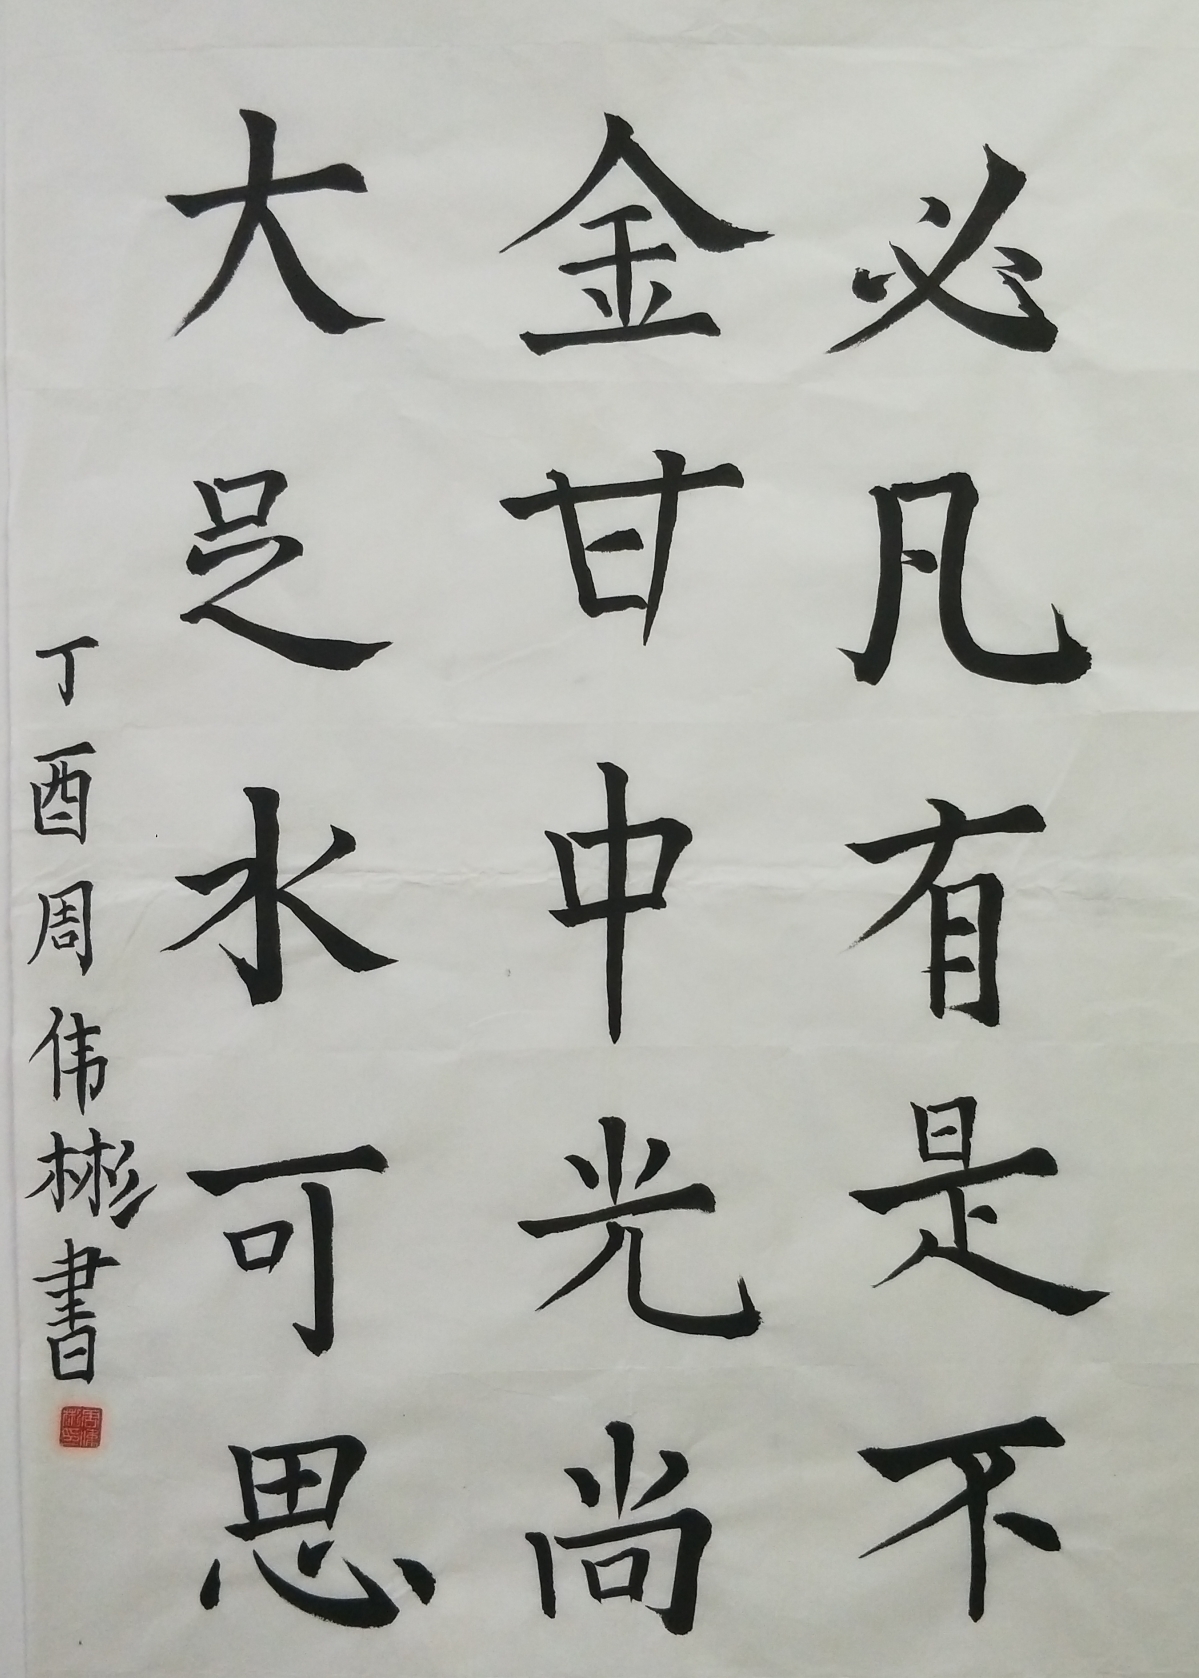 必凡有是不
金甘中光尚
大足水可思
丁酉周伟彬書